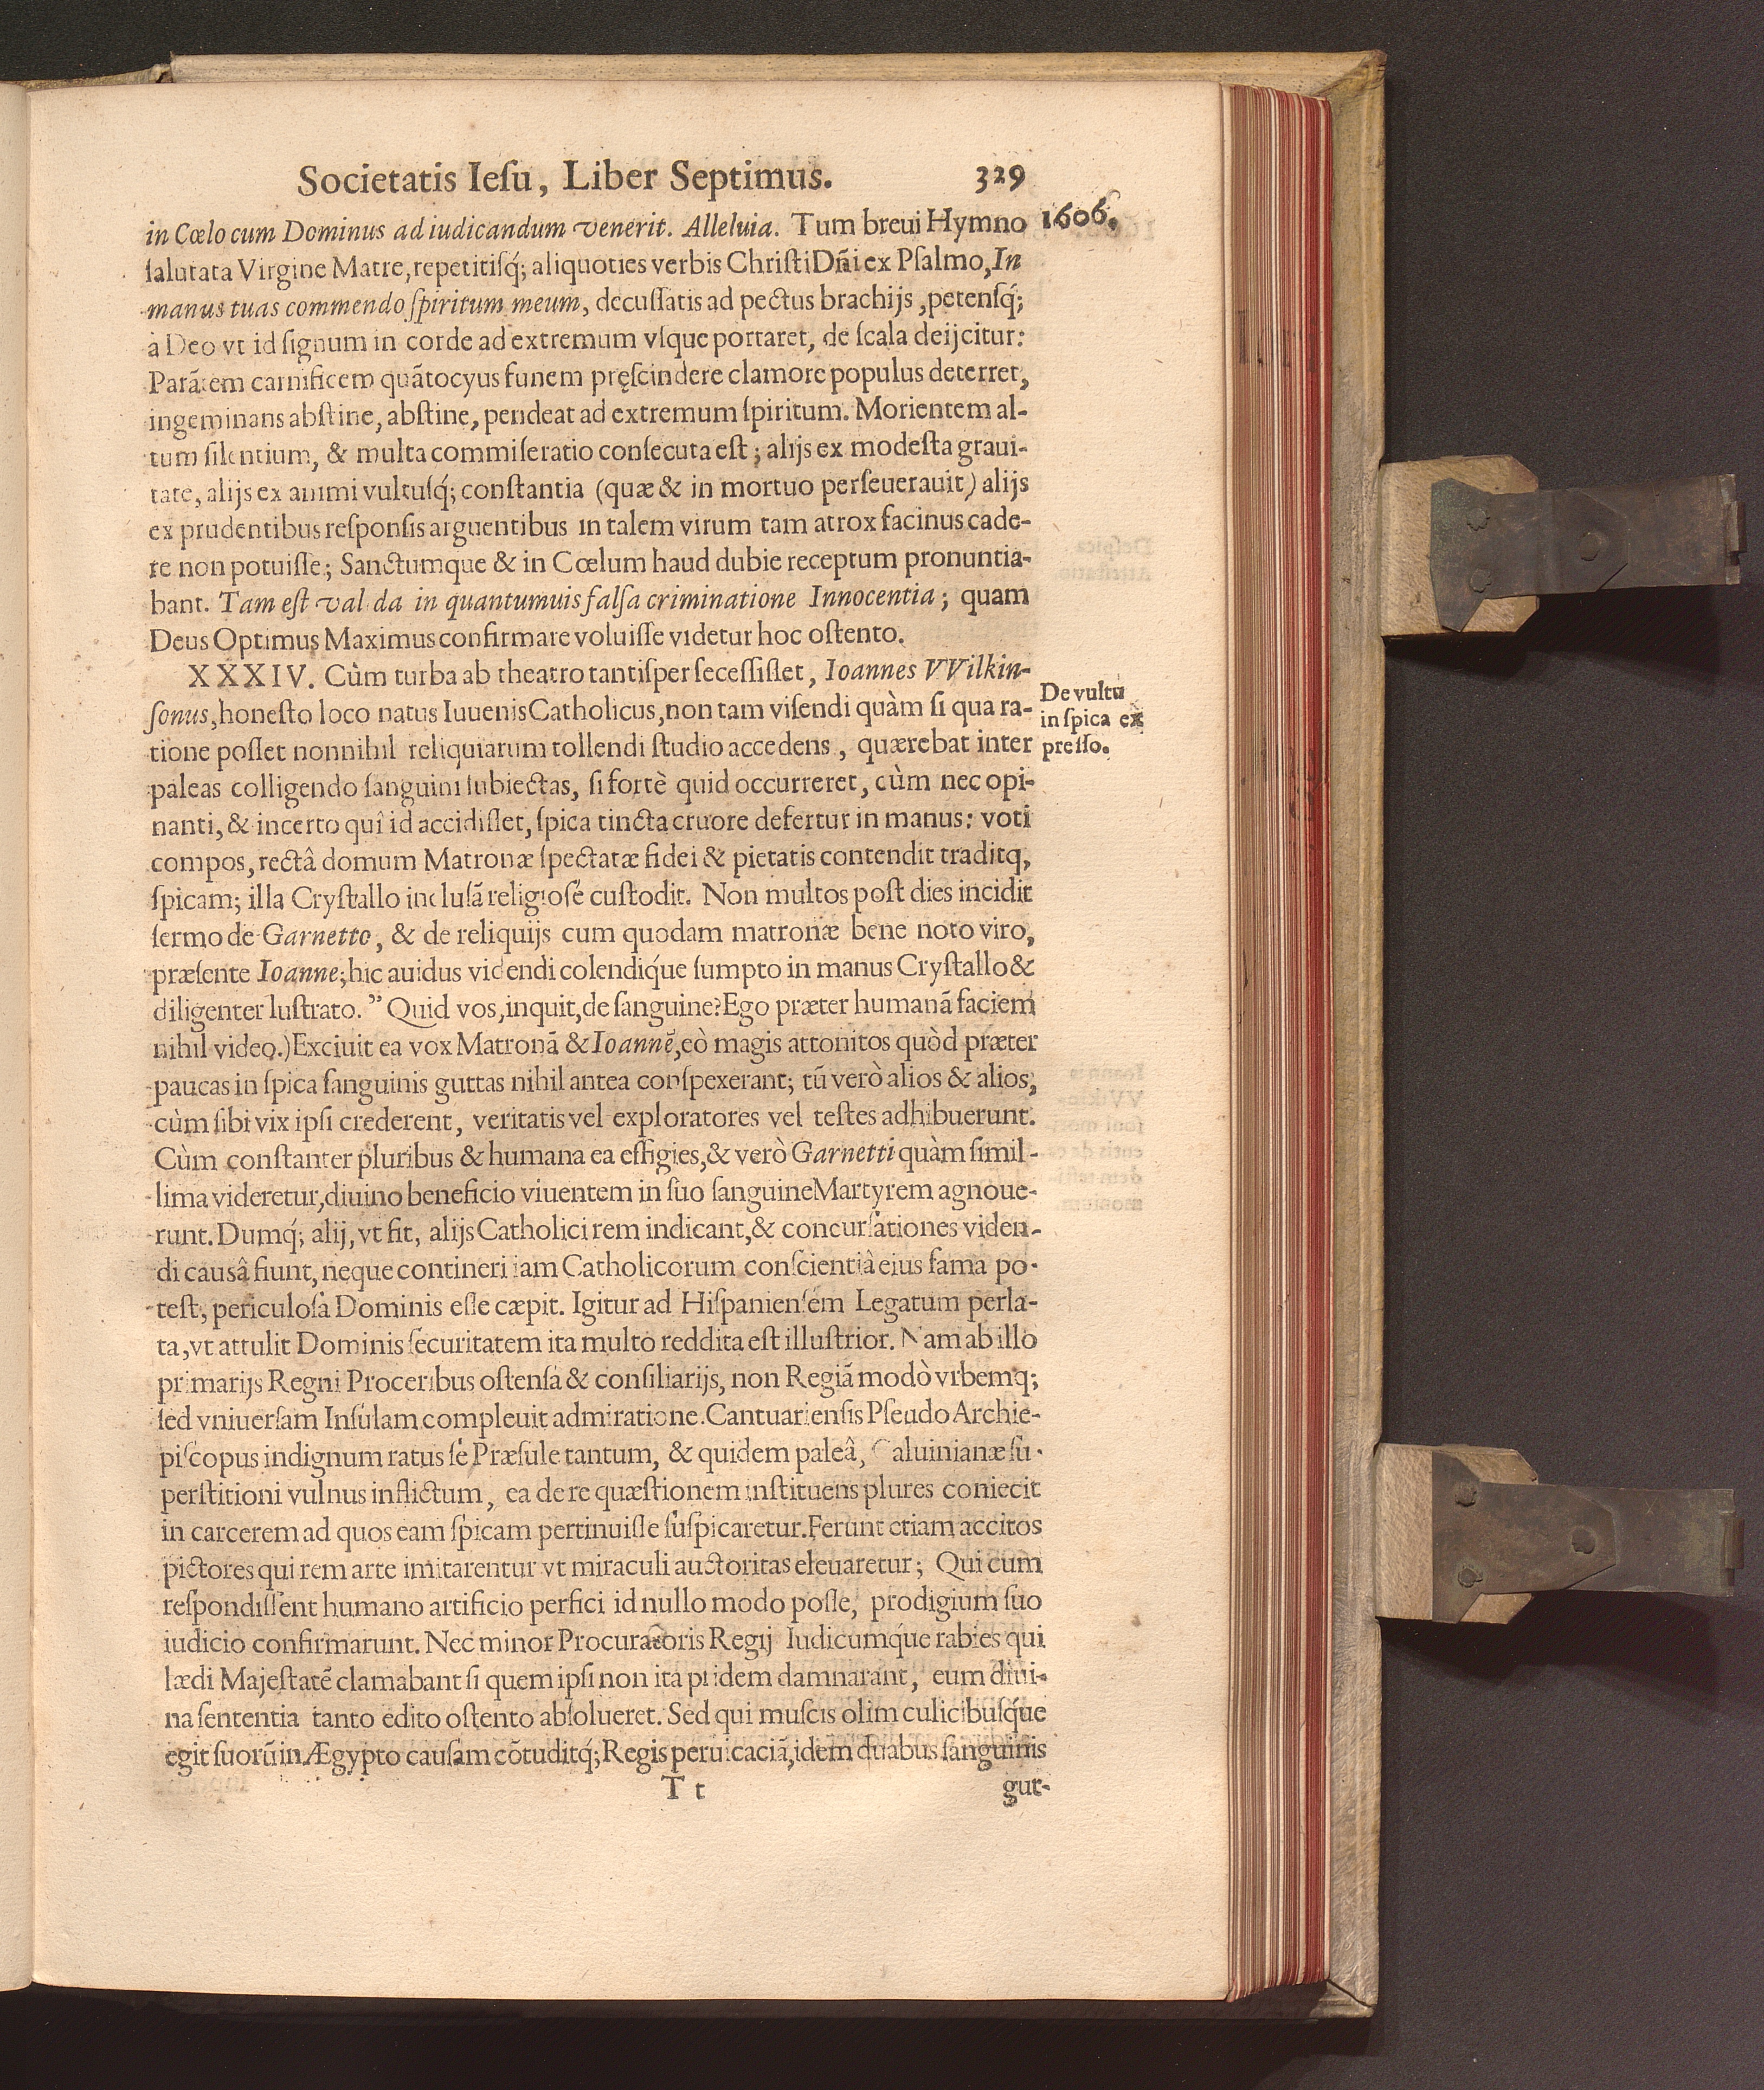 Societatis Ieſu, Liber Septimus. 329
in Cœlo cum Dominus ad iudicandum venerit. Alleluia. Tum breui Hymno
1606.
ſalutata Virgine Matre, repetitiſq́; aliquoties verbis Chriſti Dñi ex Pſalmo, In
manus tuas commendo ſpiritum meum, decuſſatis ad pectus brachijs, petenſq́;
à Deo vt id ſignum in corde ad extremum vſque portaret, de ſcala deijcitur:
Parãtem carnificem quãtocyus funem pręſcindere clamore populus deterret,
ingeminans abſtine, abſtine, pendeat ad extremum ſpiritum. Morientem al-
tum ſilentium, & multa commiſeratio conſecuta eſt; alijs ex modeſta graui-
tate, alijs ex animi vultuſq́; conſtantia (quæ & in mortuo perſeuerauit) alijs
ex prudentibus reſponſis arguentibus in talem virum tam atrox facinus cade-
re non potuiſſe; Sanctumque & in Cœlum haud dubie receptum pronuntia-
bant. Tam eſt val da in quantumuis falſa criminatione Innocentia; quam
Deus Optimus Maximus confirmare voluiſſe videtur hoc oſtento.
XXXIV. Cùm turba ab theatro tantiſper ſeceſſiſſet, Ioannes VVilkin-
ſonus, honeſto loco natus Iuuenis Catholicus, non tam viſendi quàm ſi qua ra-
tione poſſet nonnihil reliquiarum tollendi ſtudio accedens, quærebat inter
De vultu
in ſpica ex
preſſo.
paleas colligendo ſanguini ſubiectas, ſi fortè quid occurreret, cùm nec opi-
nanti, & incerto quî id accidiſſet, ſpica tincta cruore defertur in manus: voti
compos, rectâ domum Matronæ ſpectatæ fidei & pietatis contendit traditq,
ſpicam; illa Cryſtallo incluſã religioſé cuſtodit. Non multos poſt dies incidit
ſermo de Garnetto, & de reliquijs cum quodam matronæ bene noto viro,
præſente Ioanne; hic auidus videndi colendiq́ue ſumpto in manus Cryſtallo &
diligenter luſtrato. ” Quid vos, inquit, de ſanguine? Ego præter humanã faciem
nihil video.) Exciuit ea vox Matronã & Ioannẽ, eò magis attonitos quòd præter
paucas in ſpica ſanguinis guttas nihil antea conſpexerant; tũ verò alios & alios,
cùm ſibi vix ipſi crederent, veritatis vel exploratores vel teſtes adhibuerunt.
Cùm conſtanter pluribus & humana ea effigies, & verò Garnetti quàm ſimil-
lima videretur, diuino beneficio viuentem in ſuo ſanguine Martyrem agnoue-
runt. Dumq́; alij, vt fit, alijs Catholici rem indicant, & concurſationes viden-
di causâ fiunt, neque contineri iam Catholicorum conſcientiâ eius fama po-
teſt, periculoſa Dominis eſſe cæpit. Igitur ad Hiſpanienſem Legatum perla-
ta, vt attulit Dominis ſecuritatem ita multo reddita eſt illuſtrior. Nam ab illo
primarijs Regni Proceribus oſtenſa & conſiliarijs, non Regiã modò vrbemq;
ſed vniuerſam Inſulam compleuit admiratione. Cantuarienſis Pſeudo Archie-
piſcopus indignum ratus ſe Præſule tantum, & quidem paleâ, Caluinianæ ſu-
perſtitioni vulnus inflictum, ea de re quæſtionem inſtituens plures coniecit
in carcerem ad quos eam ſpicam pertinuiſſe ſuſpicaretur. Ferunt etiam accitos
pictores qui rem arte imitarentur vt miraculi auctoritas eleuaretur; Qui cum
reſpondiſſent humano artificio perfici id nullo modo poſſe, prodigium ſuo
iudicio confirmarunt. Nec minor Procuratoris Regij Iudicumq́ue rabies qui
lædi Majeſtatẽ clamabant ſi quem ipſi non ita pridem damnarant, eum diui-
na ſententia tanto edito oſtento abſolueret. Sed qui muſcis olim culicibuſq́ue
egit ſuorũ in Ægypto cauſam cõtuditq́; Regis peruicaciã, idem duabus ſanguinis
T t gut-